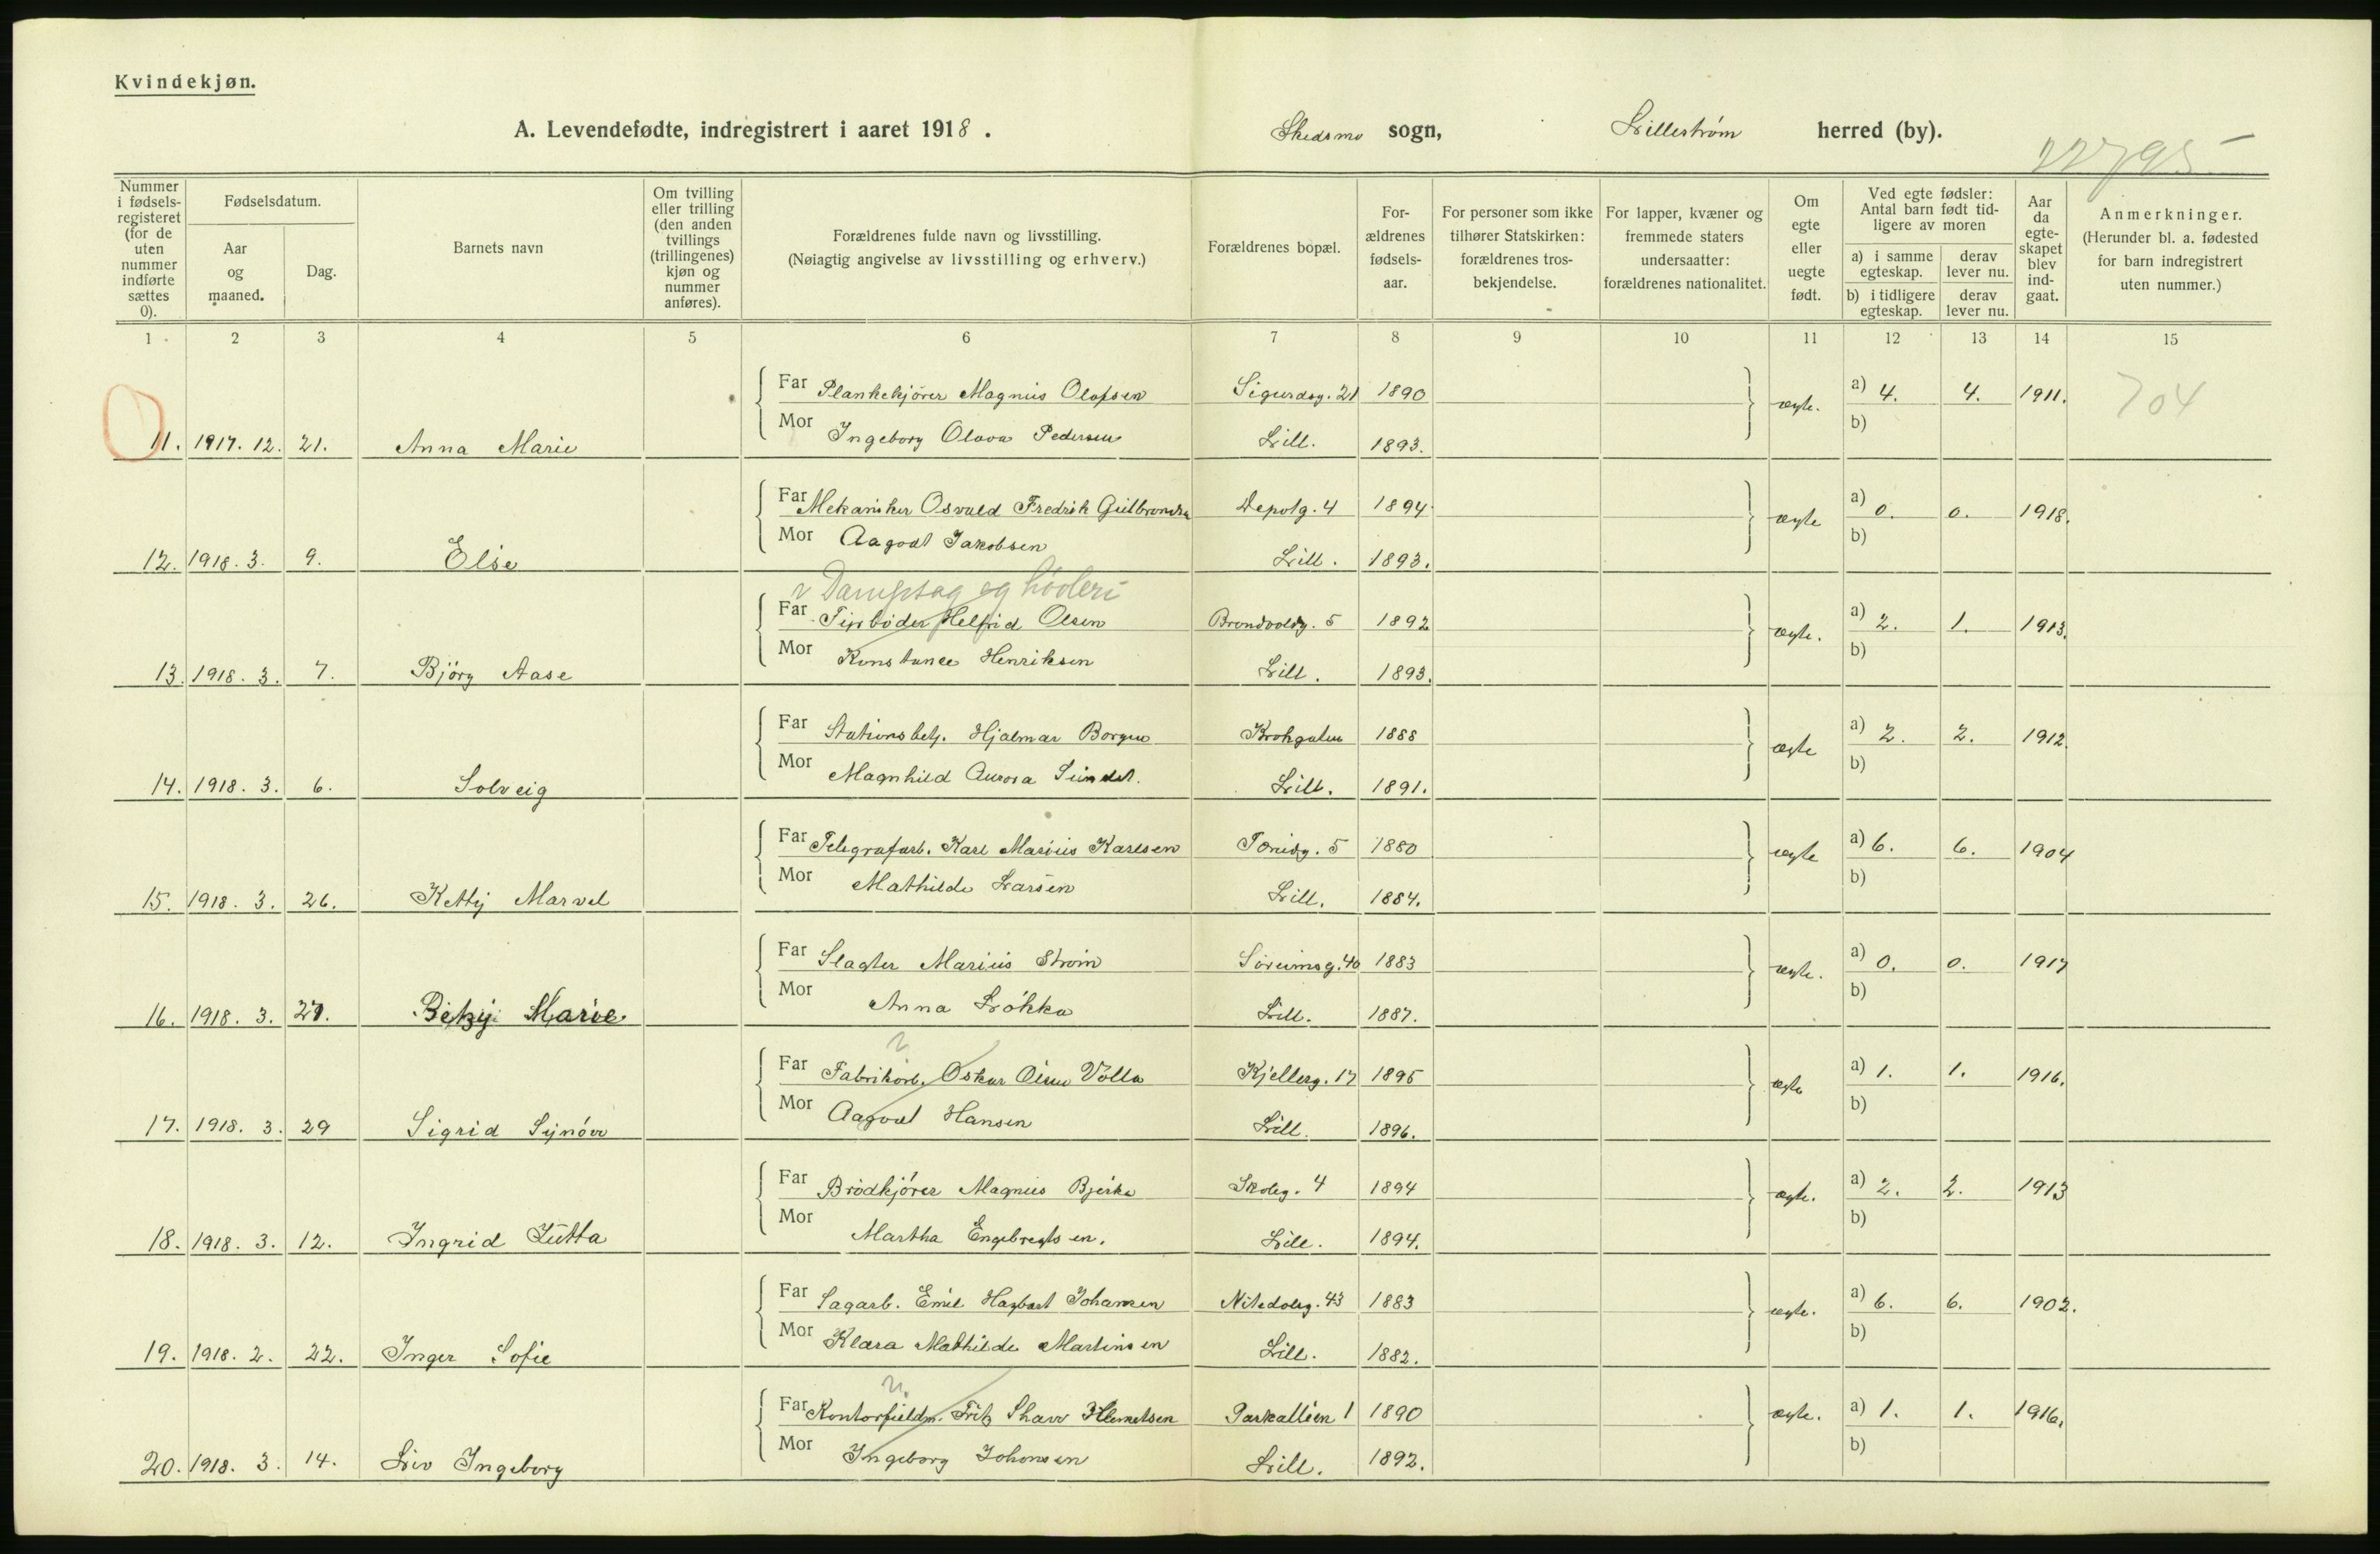 Kvindekjøn.
A. Levendefødte, indregistrert i aaret 1918. Skedsmo sogn, Lillestrøm herred (by).
22795
Nummer i fødselsregisteret (for de uten nummer indførte sættes 0).
Fødselsdatum.
Aar og maaned.
Dag.
Barnets navn
Om tvilling eller trilling (den anden tvillings (trillingenes) kjøn og nummer anføres).
Forældrenes fulde navn og livsstilling.
(Nøiagtig angivelse av livsstilling og erhverv.)
Forældrenes bopæl.
Forældrenes fødselsaar.
For personer som ikke tilhører Statskirken: forældrenes trosbekjendelse.
For lapper, kvæner og fremmede staters undersaatter: forældrenes nationalitet.
Om egte eller uegte født.
Ved egte fødsler: Antal barn født tidligere av moren
a) i samme egteskap.
derav lever nu.
b) i tidligere egteskap.
derav lever nu.
Aar da egteskapet blev indgaat.
Anmerkninger.
(Herunder bl. a. fødested for barn indregistrert uten nummer.)
1 2 3 4 5 6 7 8 9 10 11 12 13 14 15
Far Plankekjörer Magnus Olafsen Sigurdsg. 21 1890 ægte. a) 4. 4. 1911. 704
Mor Ingeborg Olava Pedersen Lill. 1893. b)
11. 1917. 12. 21. Anna Marie
Far Mekaniker Osvald Fredrik Gulbrands. Depotg. 4 1894 ægte a) 0. 0. 1918.
Mor Aagodt Jakobsen Lill. 1893. b)
12. 1918. 3. 9. Else
v Dampsag og høvleri
Far Helfrid Olsen Brondvoldg. 5 1892 ægte. a) 2. 1. 1913.
Mor Konstance Henriksen Lill. 1893. b)
13. 1918. 3. 7. Björg Aase
Far Stationsbetj. Hjalmar Borgen Krohgaten 1888 ægte a) 2. 2. 1912.
Mor Magnhild Aurora Sundet. Lill. 1891. b)
14. 1918. 3. 6. Solveig
Far Telegrafarb. Karl Marius Karlsen 5 1880 ægte a) 6. 6. 1904
Mor Mathilde Larsen Lill. 1884. b)
15. 1918. 3. 26. Ketty Marvel
Far Slagter Marius Strøm Sörumsg. 40 1883 ægte. a) 0. 0. 1917
Mor Anna Løkka Lill. 1887. b)
16. 1918. 3. 27. Betzy Marie
Far Fabrikarb. Oskar Olsen Volla Kjellerg. 17 1895 ægte a) 1. 1. 1916.
Mor Aagodt Hansen Lill. 1896. b)
17. 1918. 3. 29 Sigrid Synöve
Far Brödkjörer Magnus Bjerke Skoleg. 4 1894 ægte. a) 2. 2. 1913
Mor Martha Engebregtsen. Lill. 1894. b)
18. 1918. 3. 12. Ingrid Jutta
Far Sagarb. Emil Hagbart Johansen Nitedalsg. 43 1883 ægte. a) 6. 6. 1902.
Mor Klara Mathilde Martinsen Lill. 1882. b)
19. 1918. 2. 22. Inger Sofie
Far Kontorfuldm. Fritz Klemetsen Parkalleen 1 1890 ægte. a) 1. 1. 1916.
Mor Ingeborg Johansen Lill. 1892. b)
20. 1918. 3. 14. Liv Ingeborg